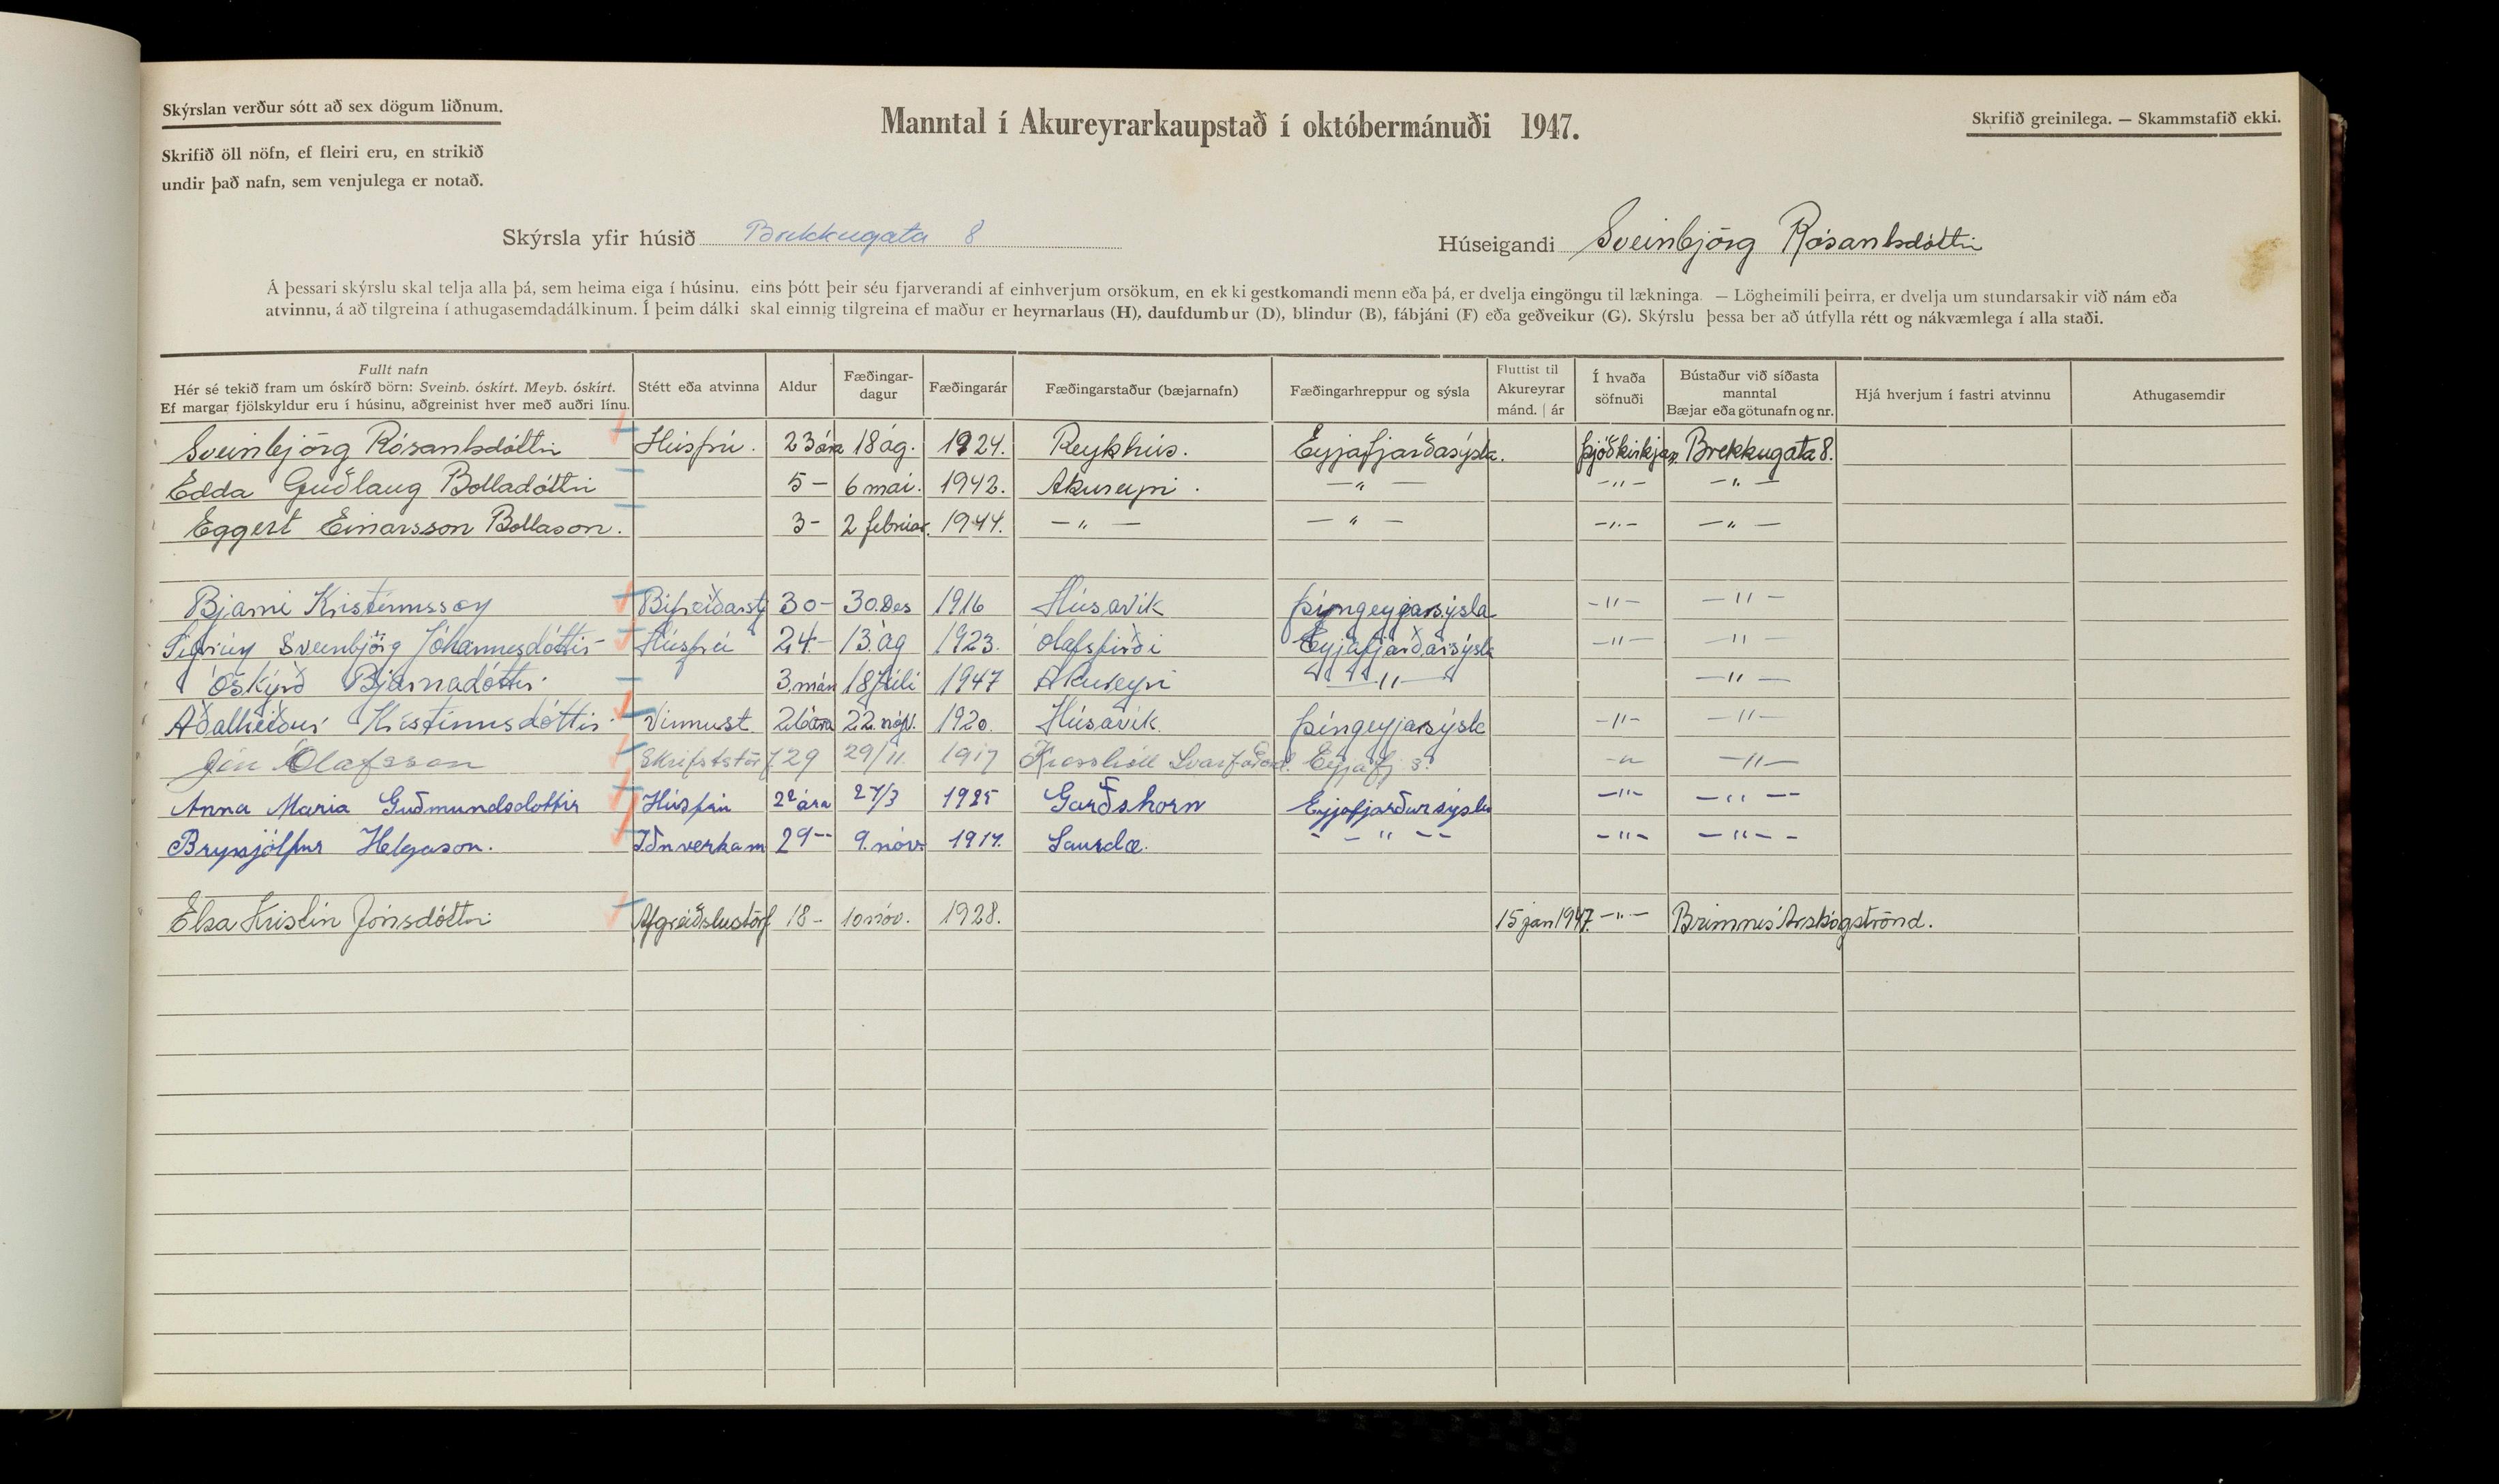 Skýrslan verður sótt að sex dögum liðnum.
Manntal í Akureyrarkaupstað í októbermánuði 1947.
Skrifið greinilega. — Skammstafið ekki.
Skrifið öll nöfn, ef fleiri eru, en strikið
undir það nafn, sem venjulega er notað.
Skýrsla yfir húsið Brekkugata 8
Húseigandi Sveinbjörg Rósantsdóttir
Á þessari skýrslu skal telja alla þá, sem heima eiga í húsinu, eins þótt þeir séu fjarverandi af einhverjum orsökum, en ekki gestkomandi menn eða þá, er dvelja eingöngu til lækninga. — Lögheimili þeirra, er dvelja um stundarsakir við nám eða
atvinnu, á að tilgreina í athugasemdadálkinum. Í þeim dálki skal einnig tilgreina ef maður er heyrnarlaus (H), daufdumbur (D), blindur (B), fábjáni (F) eða geðveikur (G). Skýrslu þessa ber að útfylla rétt og nákvæmlega í alla staði.
Fullt nafn
Hér sé tekið fram um óskírð börn: Sveinb. óskírt. Meyb. óskírt.
Ef margar fjölskyldur eru í húsinu, aðgreinist hver með auðri línu.
Stétt eða atvinna
Aldur
Fæðingar-
dagur
Fæðingarár
Fæðingarstaður (bæjarnafn)
Fæðingarhreppur og sýsla
Fluttist til
Akureyrar
mánd. | ár
Í hvaða
söfnuði
Bústaður við síðasta
manntal
Bæjar eða götunafn og nr.
Hjá hverjum í fastri atvinnu
Athugasemdir
Sveinbjörg Rósantsdóttir Húsfrú. 23 ára 18 ág. 1924. Reykhús. Eyjafjarðasýsla. Þjóðkirkjan. Brekkugata 8.
Edda Guðlaug Bolladóttir 5 – 6 mai. 1942. Akureyri. — " — – " – — " —
Eggert Einarsson Bollason. 3 – 2 februar. 1944. — " — — " — – " – — " —
Bjarni Kristinnsson Bifreiðarstj 30 – 30. Des 1916 Húsavík Þingeyjarsýsla – " – — " —
Sigrún Sveinbjörg Jóhannesdóttir Húsfrú 24 – 13. Ág 1923. Ólafsfirði Eyjafjarðarsýsla – " – — " —
Óskýrð Bjarnadóttir 3. mán 18 Júlí 1947 Akureyri — " — — " —
Aðalheiður Kristinnsdóttir Vinnust. 26 ára 22. nóv. 1920. Húsavík. Þingeyjarsýsla – " – — " —
Jón Ólafsson Skrifststörf 29 29/11. 1917 Krosshóll Svarfaðard. Eyjafj s. – " – — " —
Anna Maria Guðmundsdottir Húsfrú 22 ára 27/3 1925 Garðshorn Eyjafjarðursýslu – " – — " —
Brynjólfur Helgason. Iðnverkam 29 – 9. nóv. 1917. Saurbæ. – – " – – – " – — " – –
Elsa Kristín Jónsdóttir Afgreiðslustörf 18 – 10 nóv. 1928. 15 jan 1947. – " – Brimnes Árskógströnd.